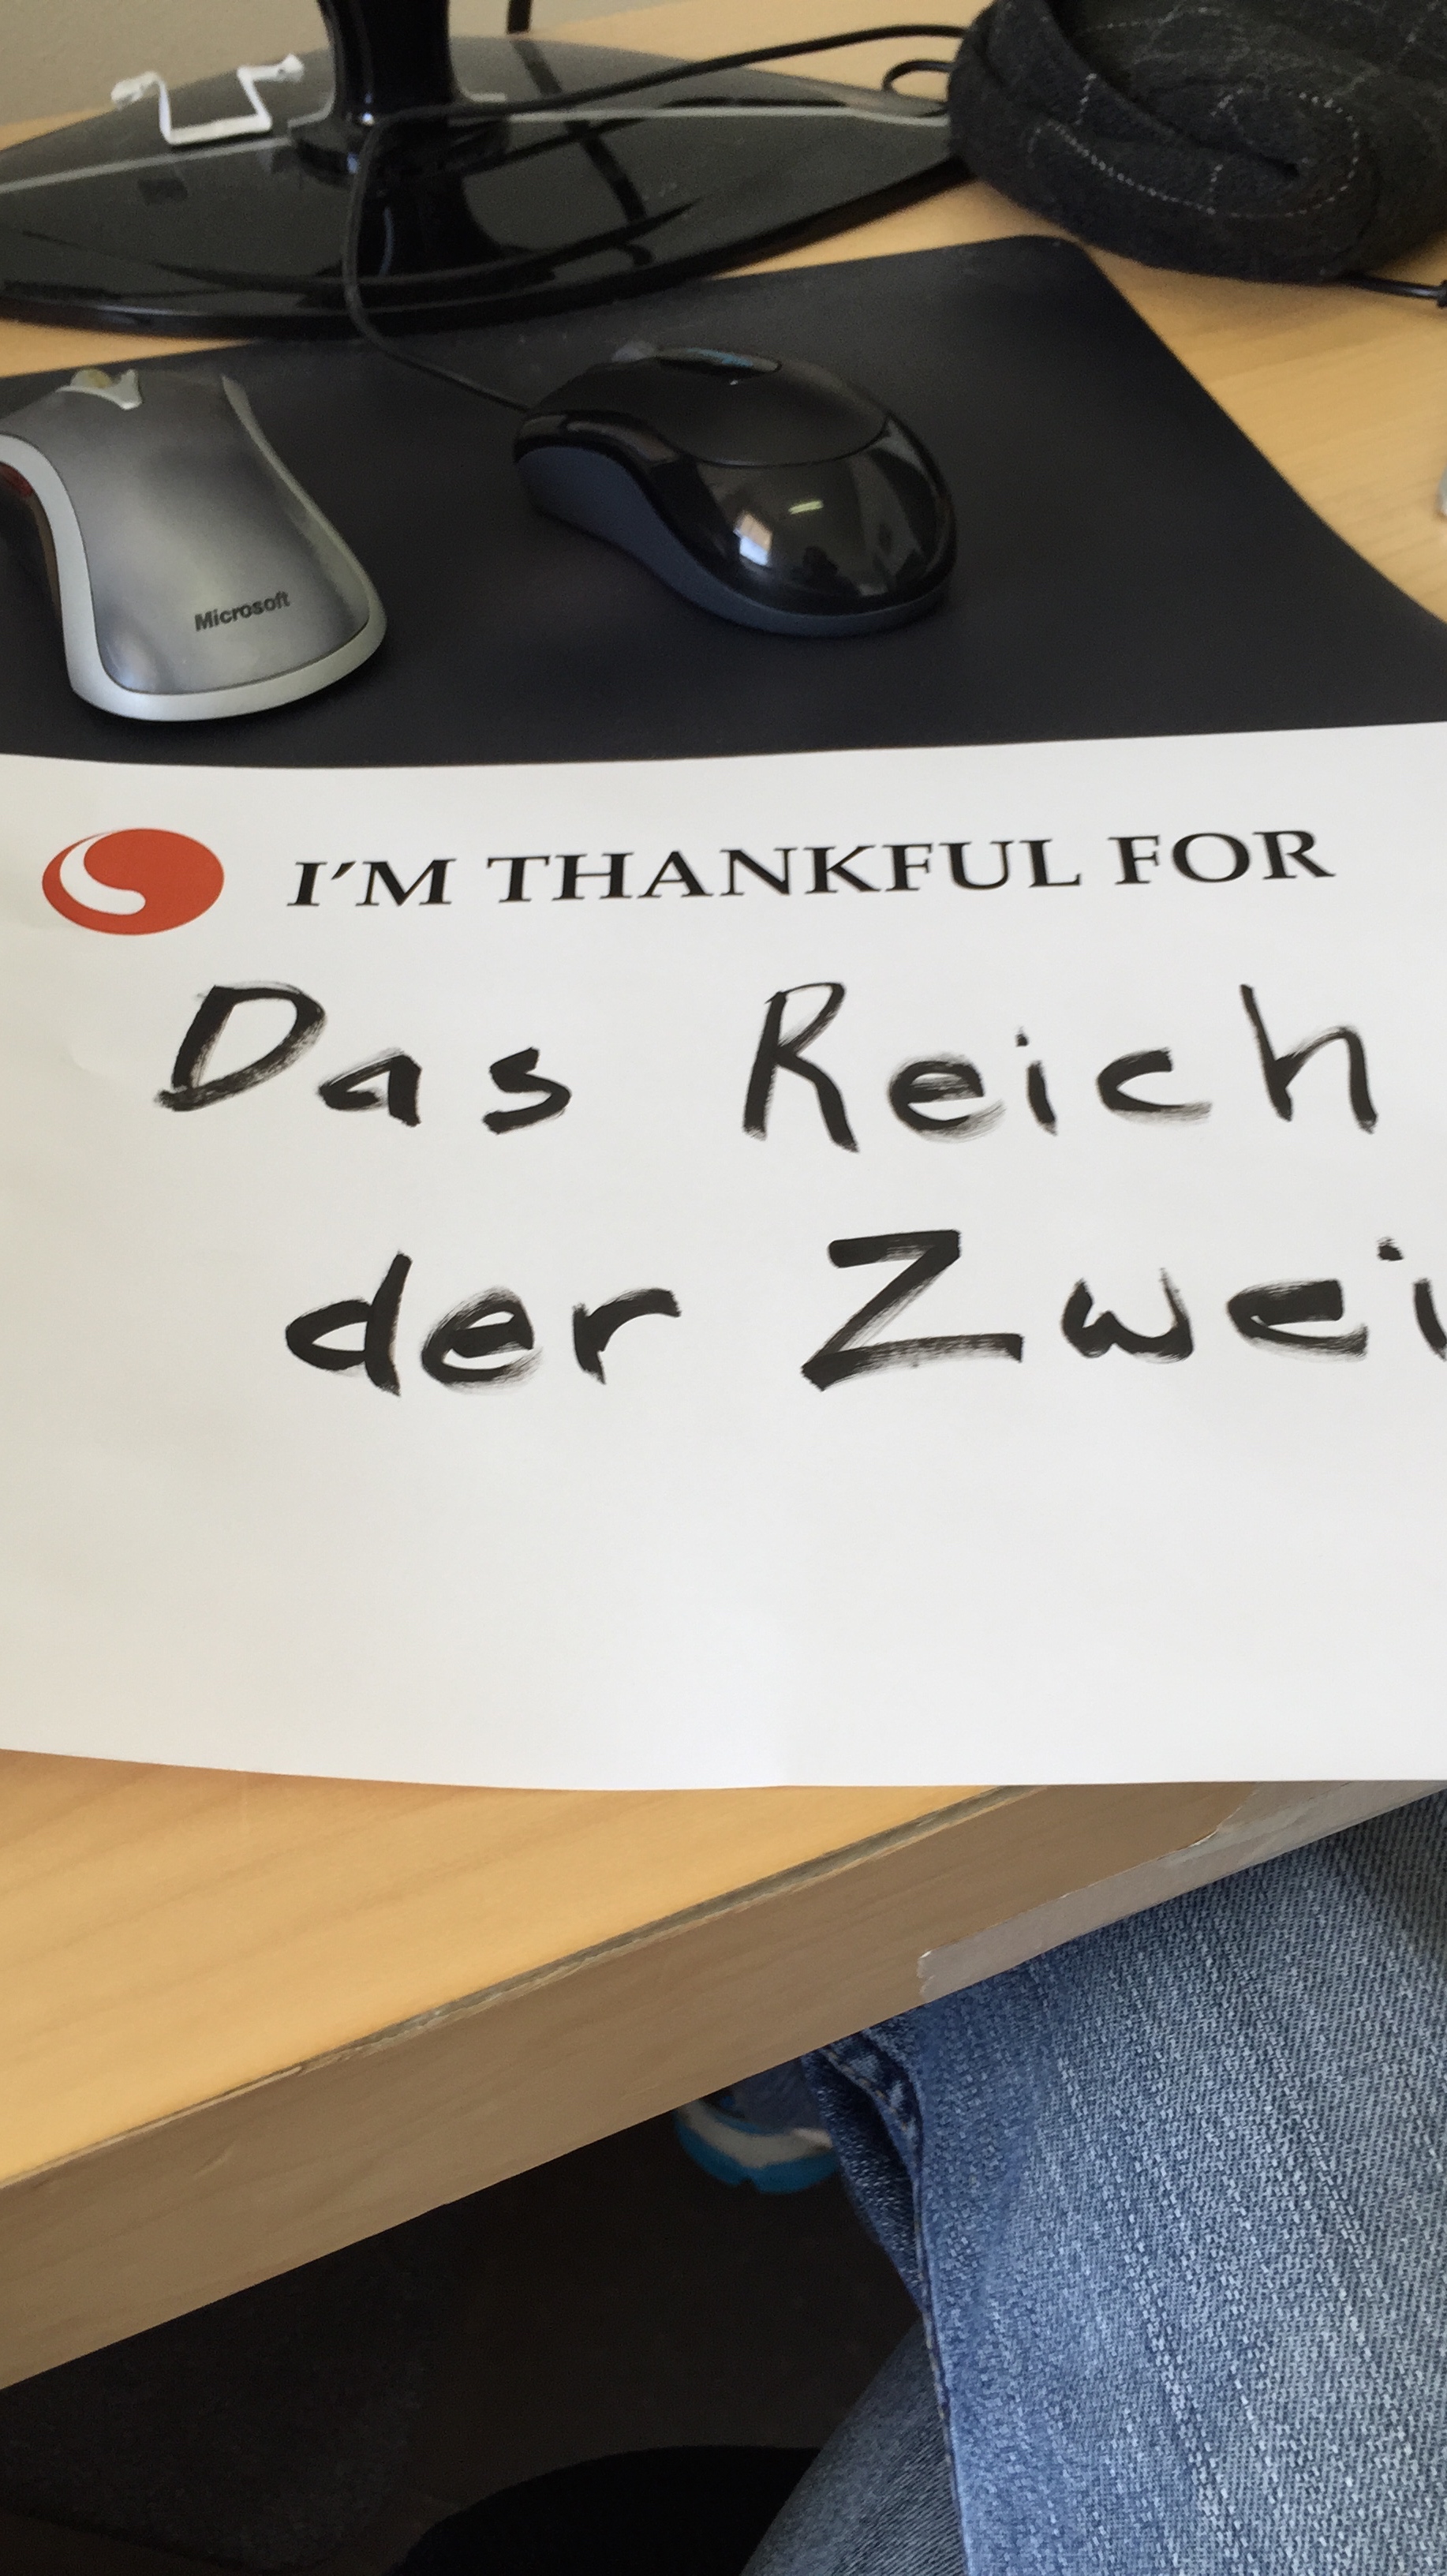 Microsoft
I'M THANKFUL FOR
Das Reich
der Zwei